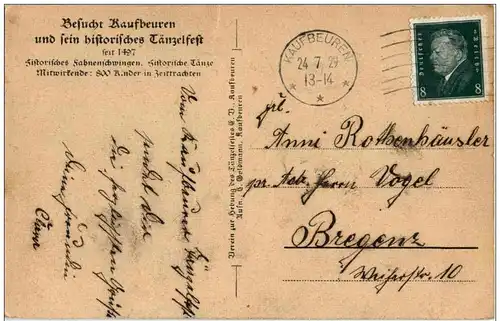 Besucht Kaufbeuren
und sein historisches Tänzelfest
seit 1497
Historisches Fahnenschwingen. Historische Tänze
Mitwirkende: 800 Kinder in Zeittrachten
KAUFBEUREN
24.7.29
13-14
Deutsches Reich
8 8
Verein zur Hebung des Tänzelfestes E. V., Kaufbeuren
Vom Kaufbeurer Tänzelfest
sendet dir
die herzlichsten Grüße
Frl.
Anni Rothenhäusler
pr. Adr. Herrn Vogel
Bregenz
10